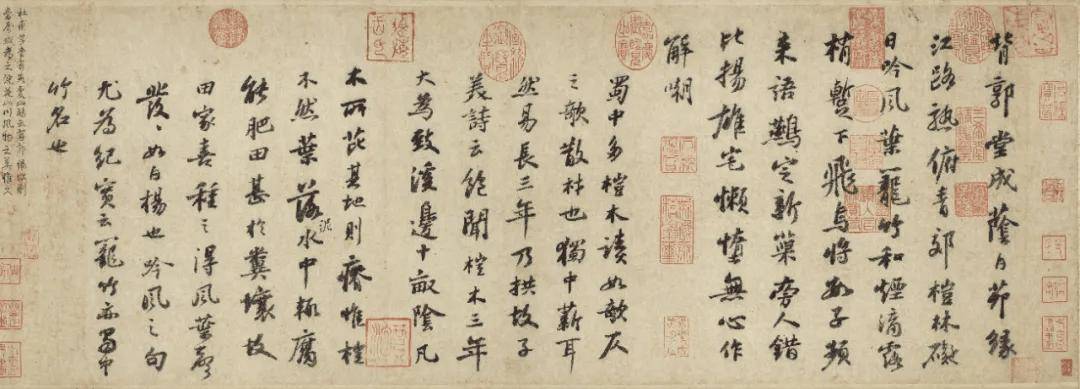 背郭堂成蔭白茅緣
江路熟俯青郊榿林礙
日吟風葉籠竹和煙滴露
梢暫下飛烏將數子頻
來語鷰定新巢旁人錯
比揚雄宅懶惰無心作
解嘲
蜀中多榿木讀如欹仄
之欹散材也獨中薪耳
然易長三年乃拱故子
美詩云飽聞榿木三年
大為致溪邊十畝陰凡
木所芘其地則瘠惟榿
不然葉落泥水中輒腐
能肥田甚於糞壤故
田家喜種之得風葉聲
發〻如白楊也吟風之句
尤為紀實云籠竹亦蜀中
竹名也